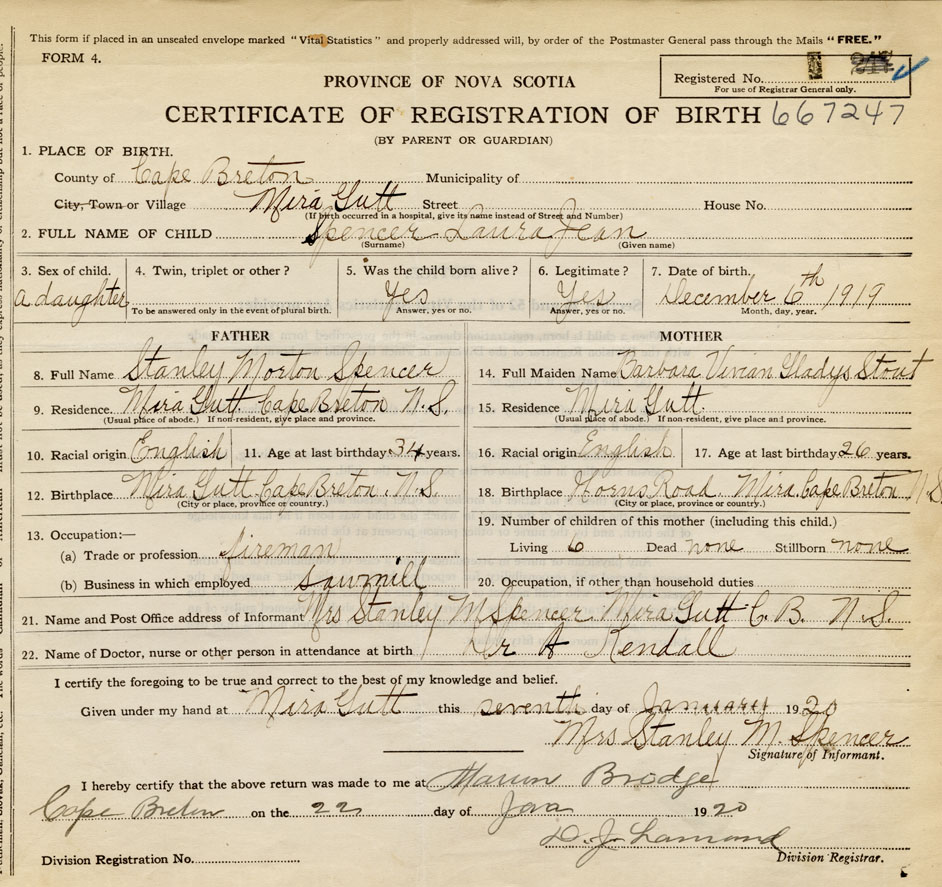 This form if placed in an unsealed envelope marked "Vital Statistics" and properly addressed will, by order of the Postmaster General pass through the Mails "FREE."
FORM 4.
Registered No.
For use of Registrar General only.
PROVINCE OF NOVA SCOTIA
CERTIFICATE OF REGISTRATION OF BIRTH 667247
(BY PARENT OR GUARDIAN)
1. PLACE OF BIRTH.
County of Cape Breton Municipality of
City, Town or Village Mira Gutt Street House No.
(If birth occurred in a hospital, give its name instead of Street and Number)
2. FULL NAME OF CHILD Spencer Laura Jean
(Surname) (Given name)
3. Sex of child. 4. Twin, triplet or other? 5. Was the child born alive? 6. Legitimate? 7. Date of birth.
a daughter Yes Yes December 6th 1919
To be answered only in the event of plural birth. Answer, yes or no. Answer, yes or no. Month, day, year.
FATHER MOTHER
8. Full Name Stanley Morton Spencer 14. Full Maiden Name Barbara Vivian Gladys Stout
9. Residence. Mira Gutt Cape Breton N.S. 15. Residence Mira Gutt
(Usual place of abode.) If non-resident, give place and province. (Usual place of abode.) If non-resident, give place and province.
10. Racial origin English 11. Age at last birthday 34 years. 16. Racial origin English 17. Age at last birthday 26 years.
12. Birthplace Mira Gutt Cape Breton. N.S. 18. Birthplace Horns Road. Mira. Cape Breton N.S.
(City or place, province or country.) (City or place, province or country.)
13. Occupation:— 19. Number of children of this mother (including this child.)
(a) Trade or profession fireman Living 6 Dead none Stillborn none
(b) Business in which employed sawmill 20. Occupation, if other than household duties
21. Name and Post Office address of Informant Mrs Stanley M Spencer Mira Gutt C.B. N.S.
22. Name of Doctor, nurse or other person in attendance at birth Dr A Kendall
I certify the foregoing to be true and correct to the best of my knowledge and belief.
Given under my hand at Mira Gutt this seventh day of January 1920
Mrs Stanley M. Spencer
Signature of Informant.
I hereby certify that the above return was made to me at Marion Bridge
Cape Breton on the 22 day of Jan 1920
D. J. Lamond
Division Registration No. Division Registrar.